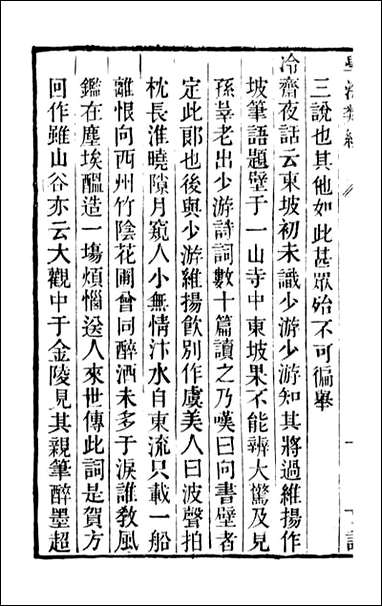 三說也其他如此甚眾殆不可徧舉
冷齋夜話云東坡初未識少游少游知其將過維揚作
坡筆語題壁于一山寺中東坡果不能辨大驚及見
孫莘老出少游詩詞數十篇讀之乃嘆曰向書壁者
定此郎也後與少游維揚飲別作虞美人曰波聲拍
枕長淮曉隙月窺人小無情汴水自東流只載一船
離恨向西州竹陰花圃曾同醉酒未多于淚誰敎風
鑑在塵埃醞造一塲煩惱送人來世傳此詞是賀方
回作雖山谷亦云大觀中于金陵見其親筆醉墨超